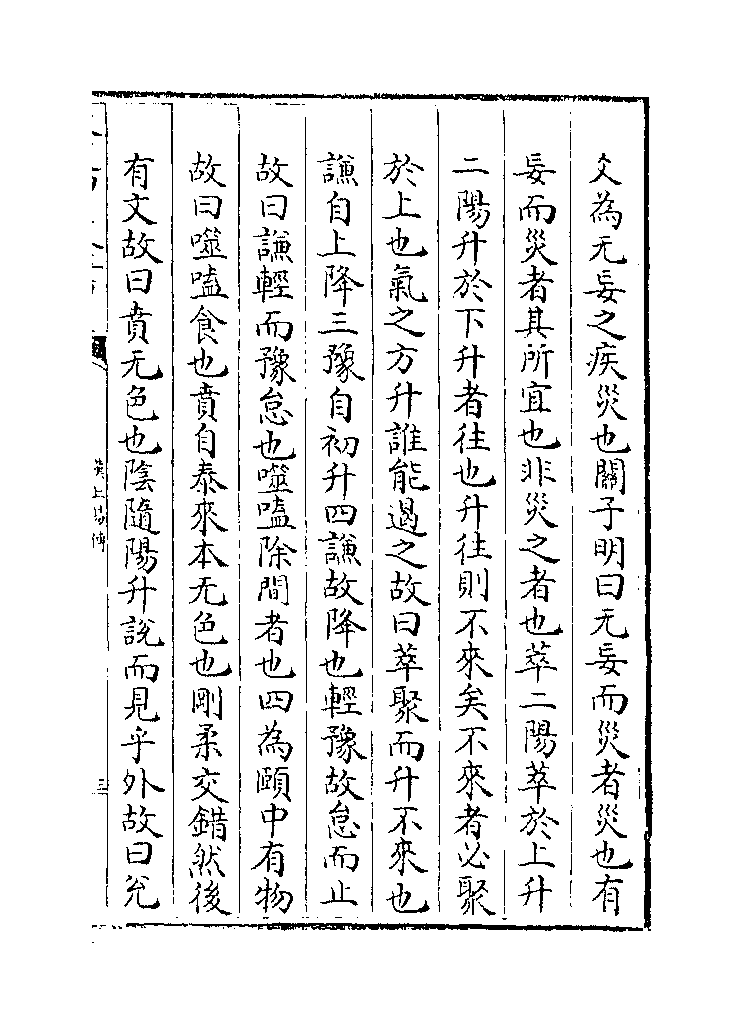 爻為无妄之疾災也關子明曰无妄而災者災也有
妄而災者其所宜也非災之者也萃二陽萃於上升
二陽升於下升者往也升往則不來矣不來者必聚
於上也氣之方升誰能遏之故曰萃聚而升不來也
謙自上降三豫自初升四謙故降也輕豫故怠而止
故曰謙輕而豫怠也噬嗑除間者也四為頤中有物
故曰噬嗑食也賁自泰來本无色也剛柔交錯然後
有文故曰賁无色也陰隨陽升說而見乎外故曰兊
漢上易傳
三